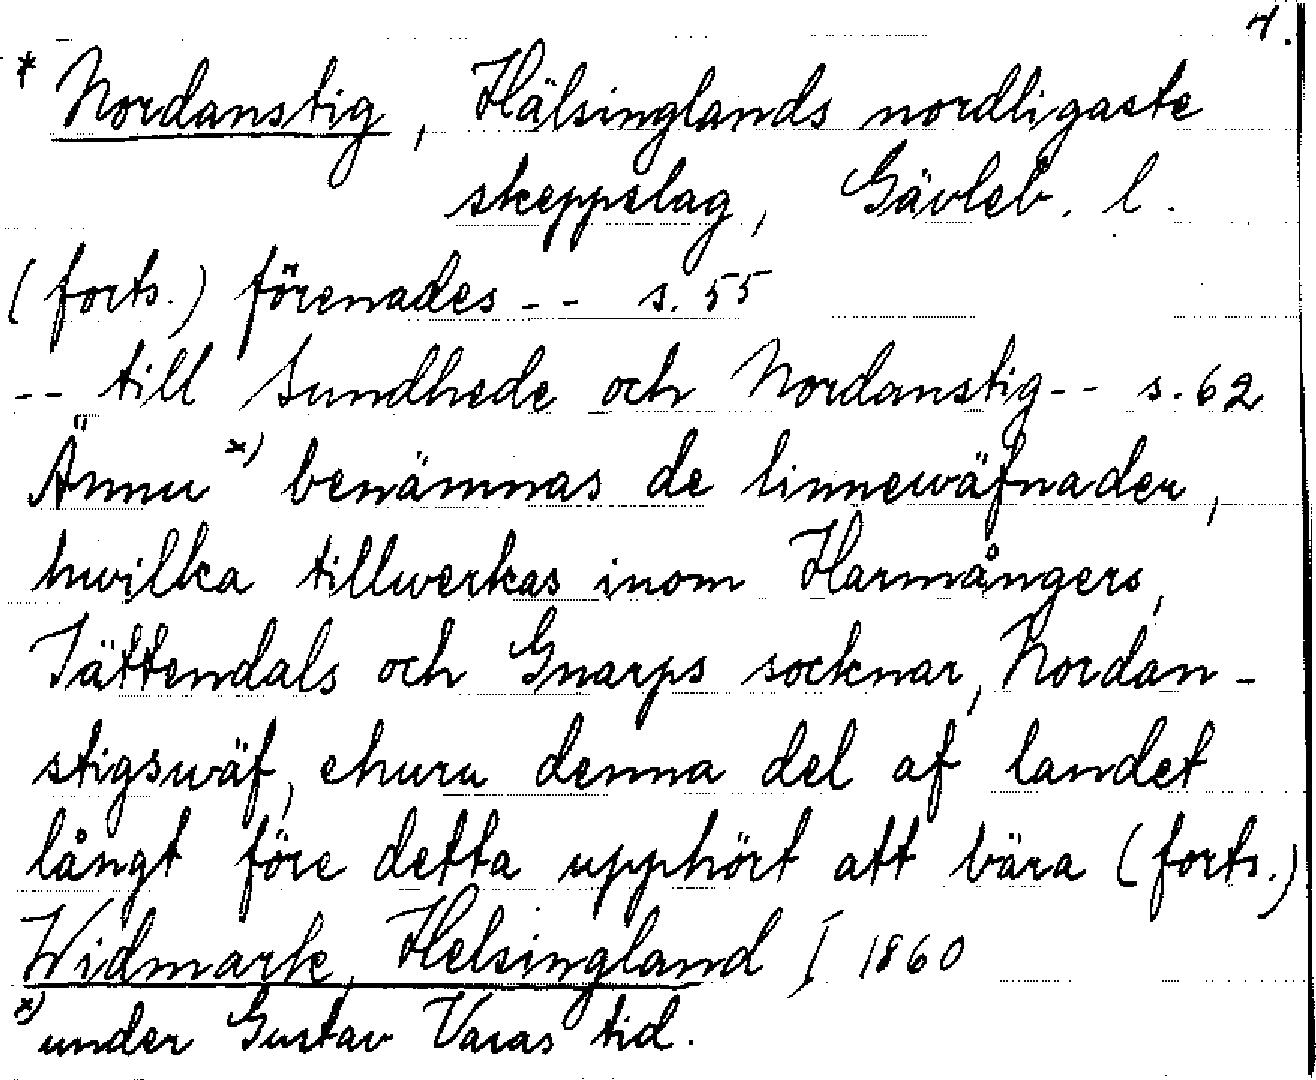 4.
* Nordanstig, Hälsinglands nordligaste
skeppslag, Gävleb. l.
(forts.) förenades -- s. 55
-- till Sundhede och Nordanstig -- s. 62
Ännu *) benämnas de linnewäfnader,
hwilka tillwerkas inom Harmångers,
Jättendals och Gnarps socknar, Nordan-
stigswäf, ehuru denna del af landet
långt före detta upphört att bära (forts.)
Widmark, Helsingland I 1860
*) under Gustav Vasas tid.